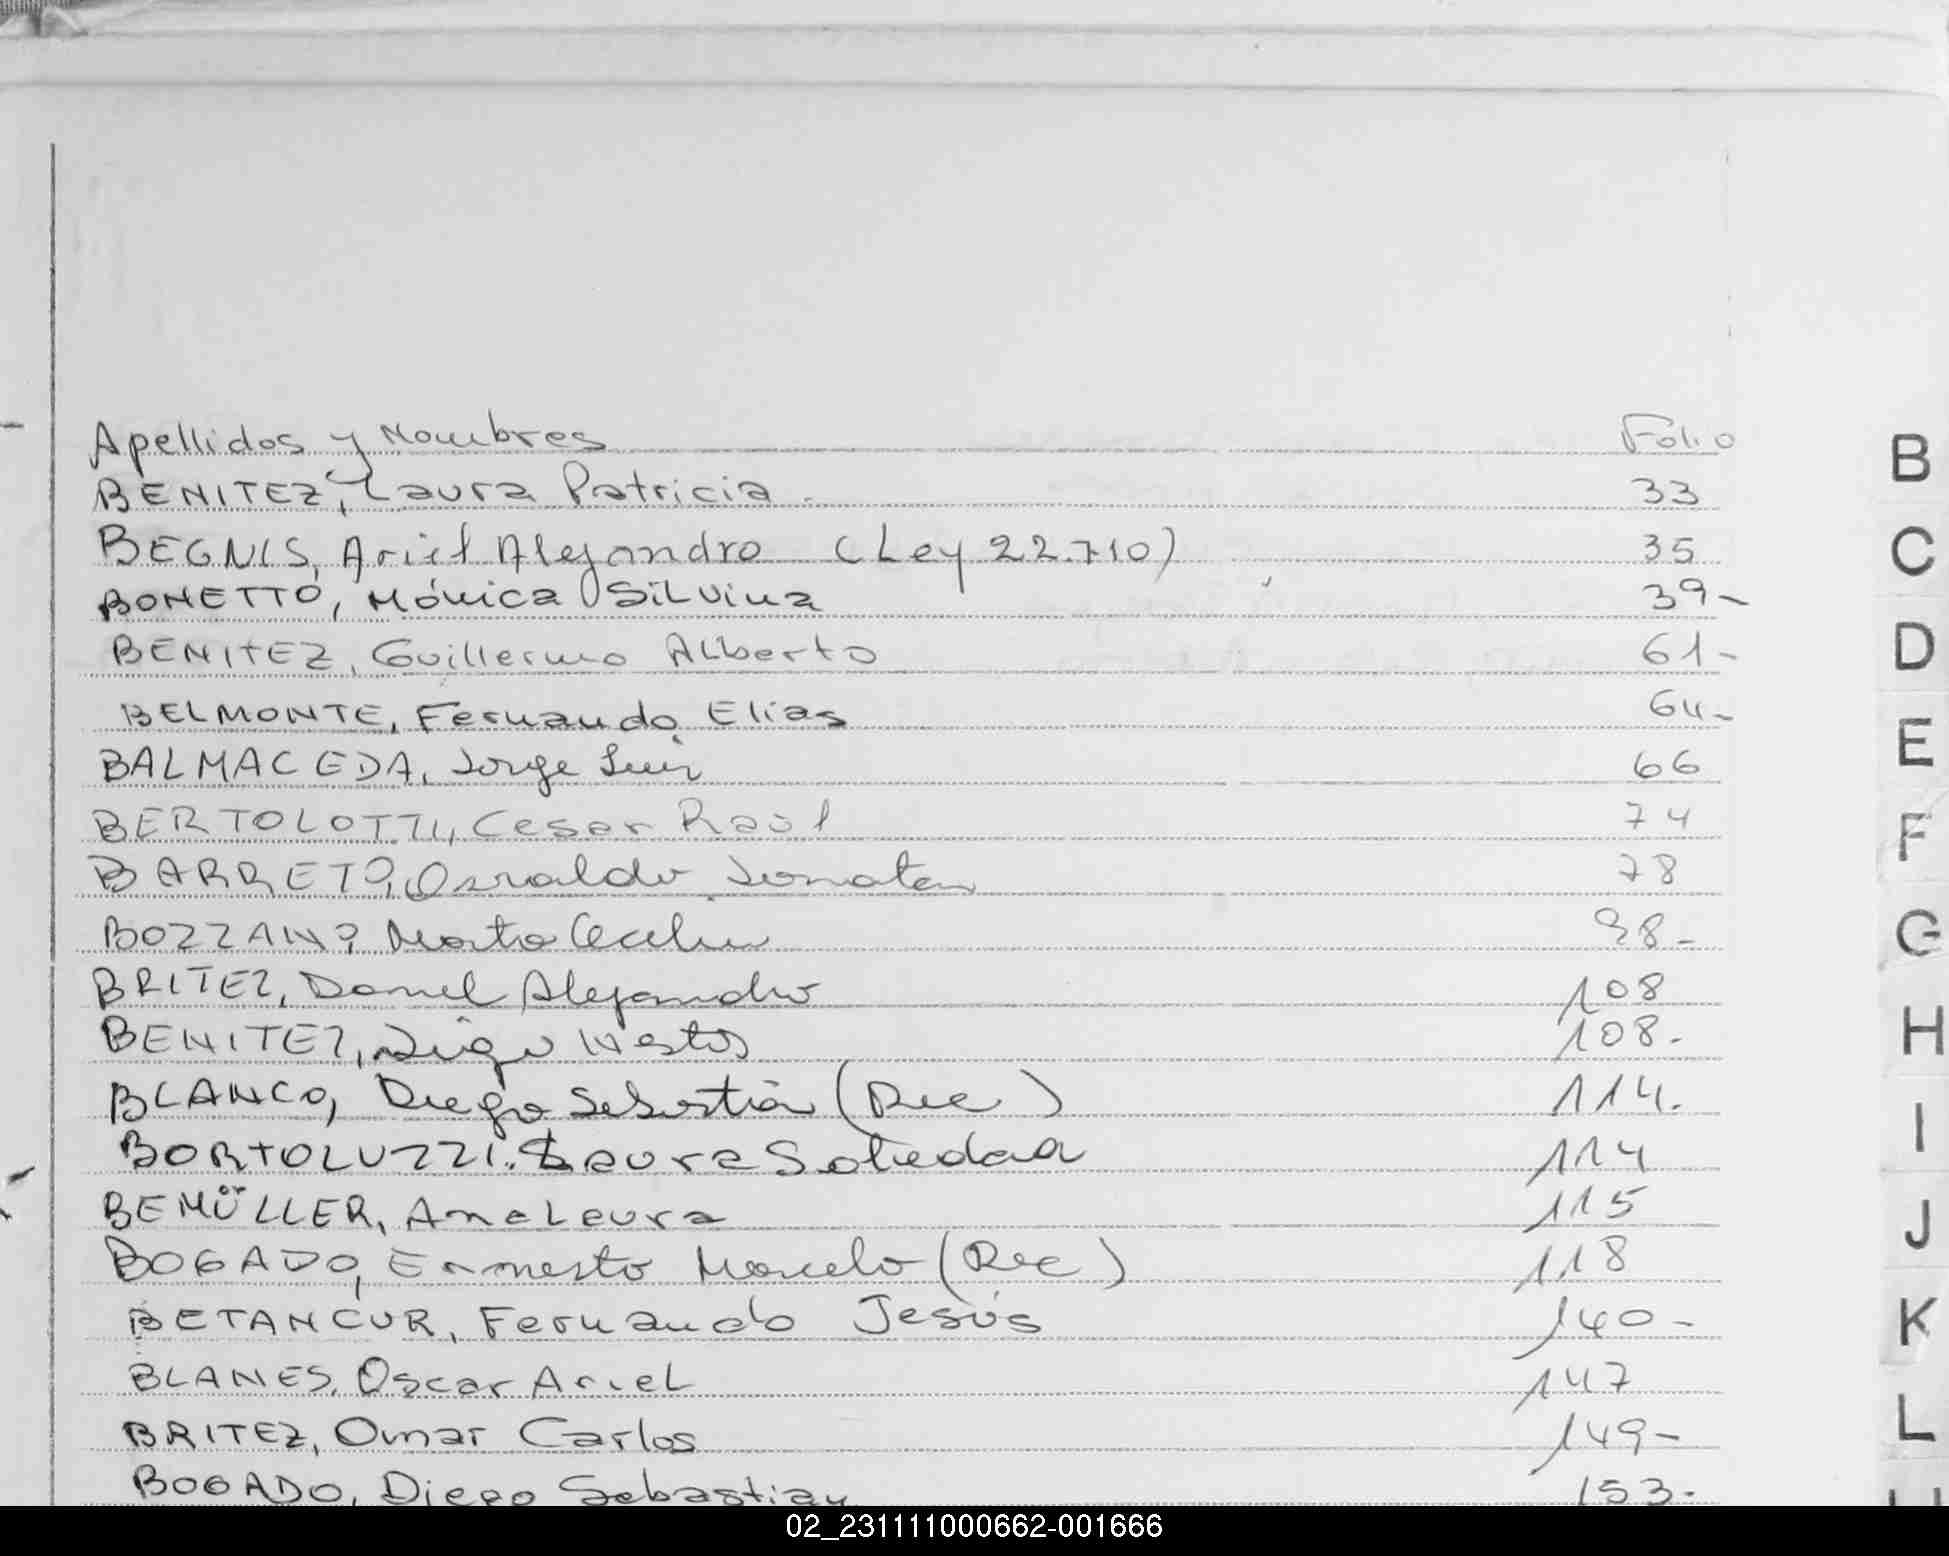 Apellidos y Nombres Folio
BENITEZ, Laura Patricia. 33
BEGNIS, Ariel Alejandro (Ley 22.710) 35
BONETTO, Mónica Silvina 39-
BENITEZ, Guillermo Alberto 61-
BELMONTE, Fernando Elias 64-
BALMACEDA, Jorge Luis 66
BERTOLOTTI, Cesar Raúl 74
BARRETO, Osvaldo Jonatan 78
BOZZANO Marta Cecilia 98-
BRITEZ, Daniel Alejandro 108
BENITEZ, Diego Nestor 108.
BLANCO, Diego Sebastián (Rec) 114.
BORTOLUZZI, Laura Soledad 114
BEMÜLLER, Ana Laura 115
BOGADO, Ernesto Marcelo (Rec) 118
BETANCUR, Fernando Jesús 140-
BLANES, Oscar Ariel 147
BRITEZ, Omar Carlos 149-
BOGADO, Diego Sebastian 153.
B
C
D
E
F
G
H
I
J
K
L
02_231111000662-001666